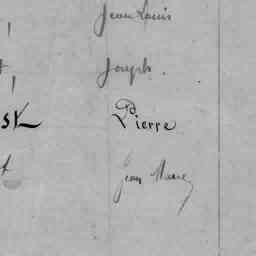 Jean Louis
Joseph.
sk Pierre
Jean Marie